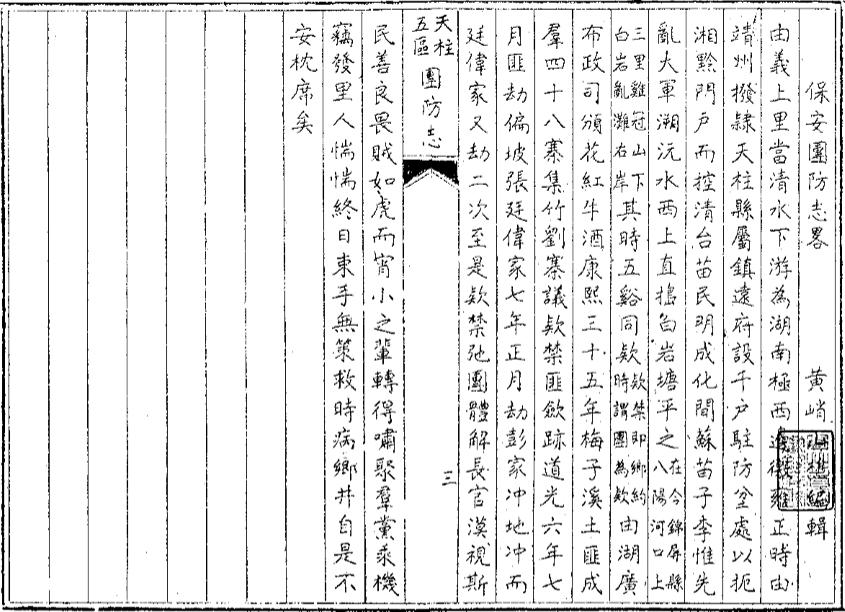 保安團防志畧　黃峭山樵編輯
由義上里當清水下游為湖南極西邊徼雍正時由
靖州撥隸天柱縣屬鎮遠府設千戶駐防垒處以扼
湘黔門戶而控清台苗民明成化間蘇苗子李惟先
亂大軍溯沅水西上直搗白岩塘平之在今錦屏縣八陽河口上
三里雞冠山下白岩亂灘右岸其時五谿同欵欵禁即鄉約時謂團為欵由湖廣
布政司頒花紅牛酒康熙三十五年梅子溪土匪成
羣四十八寨集竹劉寨議欵禁匪斂跡道光六年七
月匪劫偏坡張廷偉家七年正月劫彭家冲地冲而
廷偉家又劫二次至是欵禁弛團體解長官漠視斯
天柱五區團防志
三
民善良畏賊如虎而宵小之輩轉得嘯聚羣黨乘機
竊發里人惴惴終日束手無策救時病鄉井自是不
安枕席矣